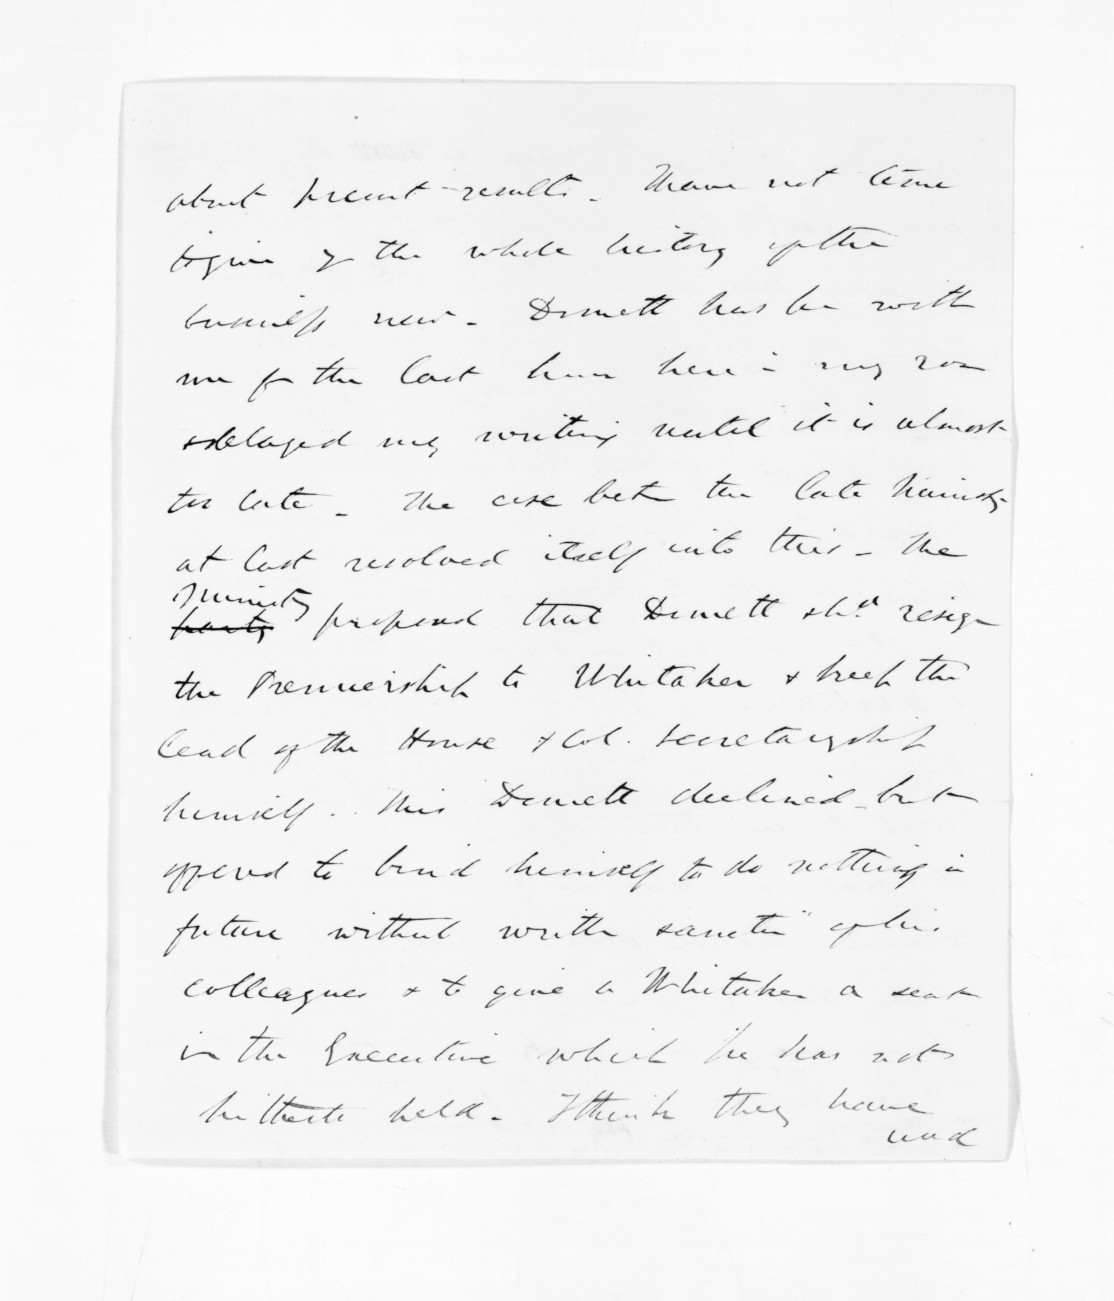 about present results. I have not time
to give y the whole history of the
business now. Domett has be with
me for the last hour here in my room
& delayed my writing until it is almost
too late. The case bet. the late Ministry
at last resolved itself into this. The
Ministry
party proposed that Domett sh.d resign
the Premiership to Whitaker & keep the
lead of the House & Col. Secretaryship
himself. This Domett declined but
offered to bind himself to do nothing in
future without written sanction of his
colleagues & to give a Whitaker a seat
in the Executive which he has not
hitherto held. I think they have
used